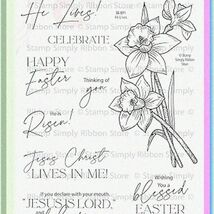 He Lives.
CELEBRATE
HAPPY
Easter
Thinking of
you
He is
Risen!
Jesus Christ
LIVES IN ME!
If you declare with your mouth,
"JESUS IS LORD,"
Wishing
You a
blessed
EASTER
© Stamp Simply Ribbon Store